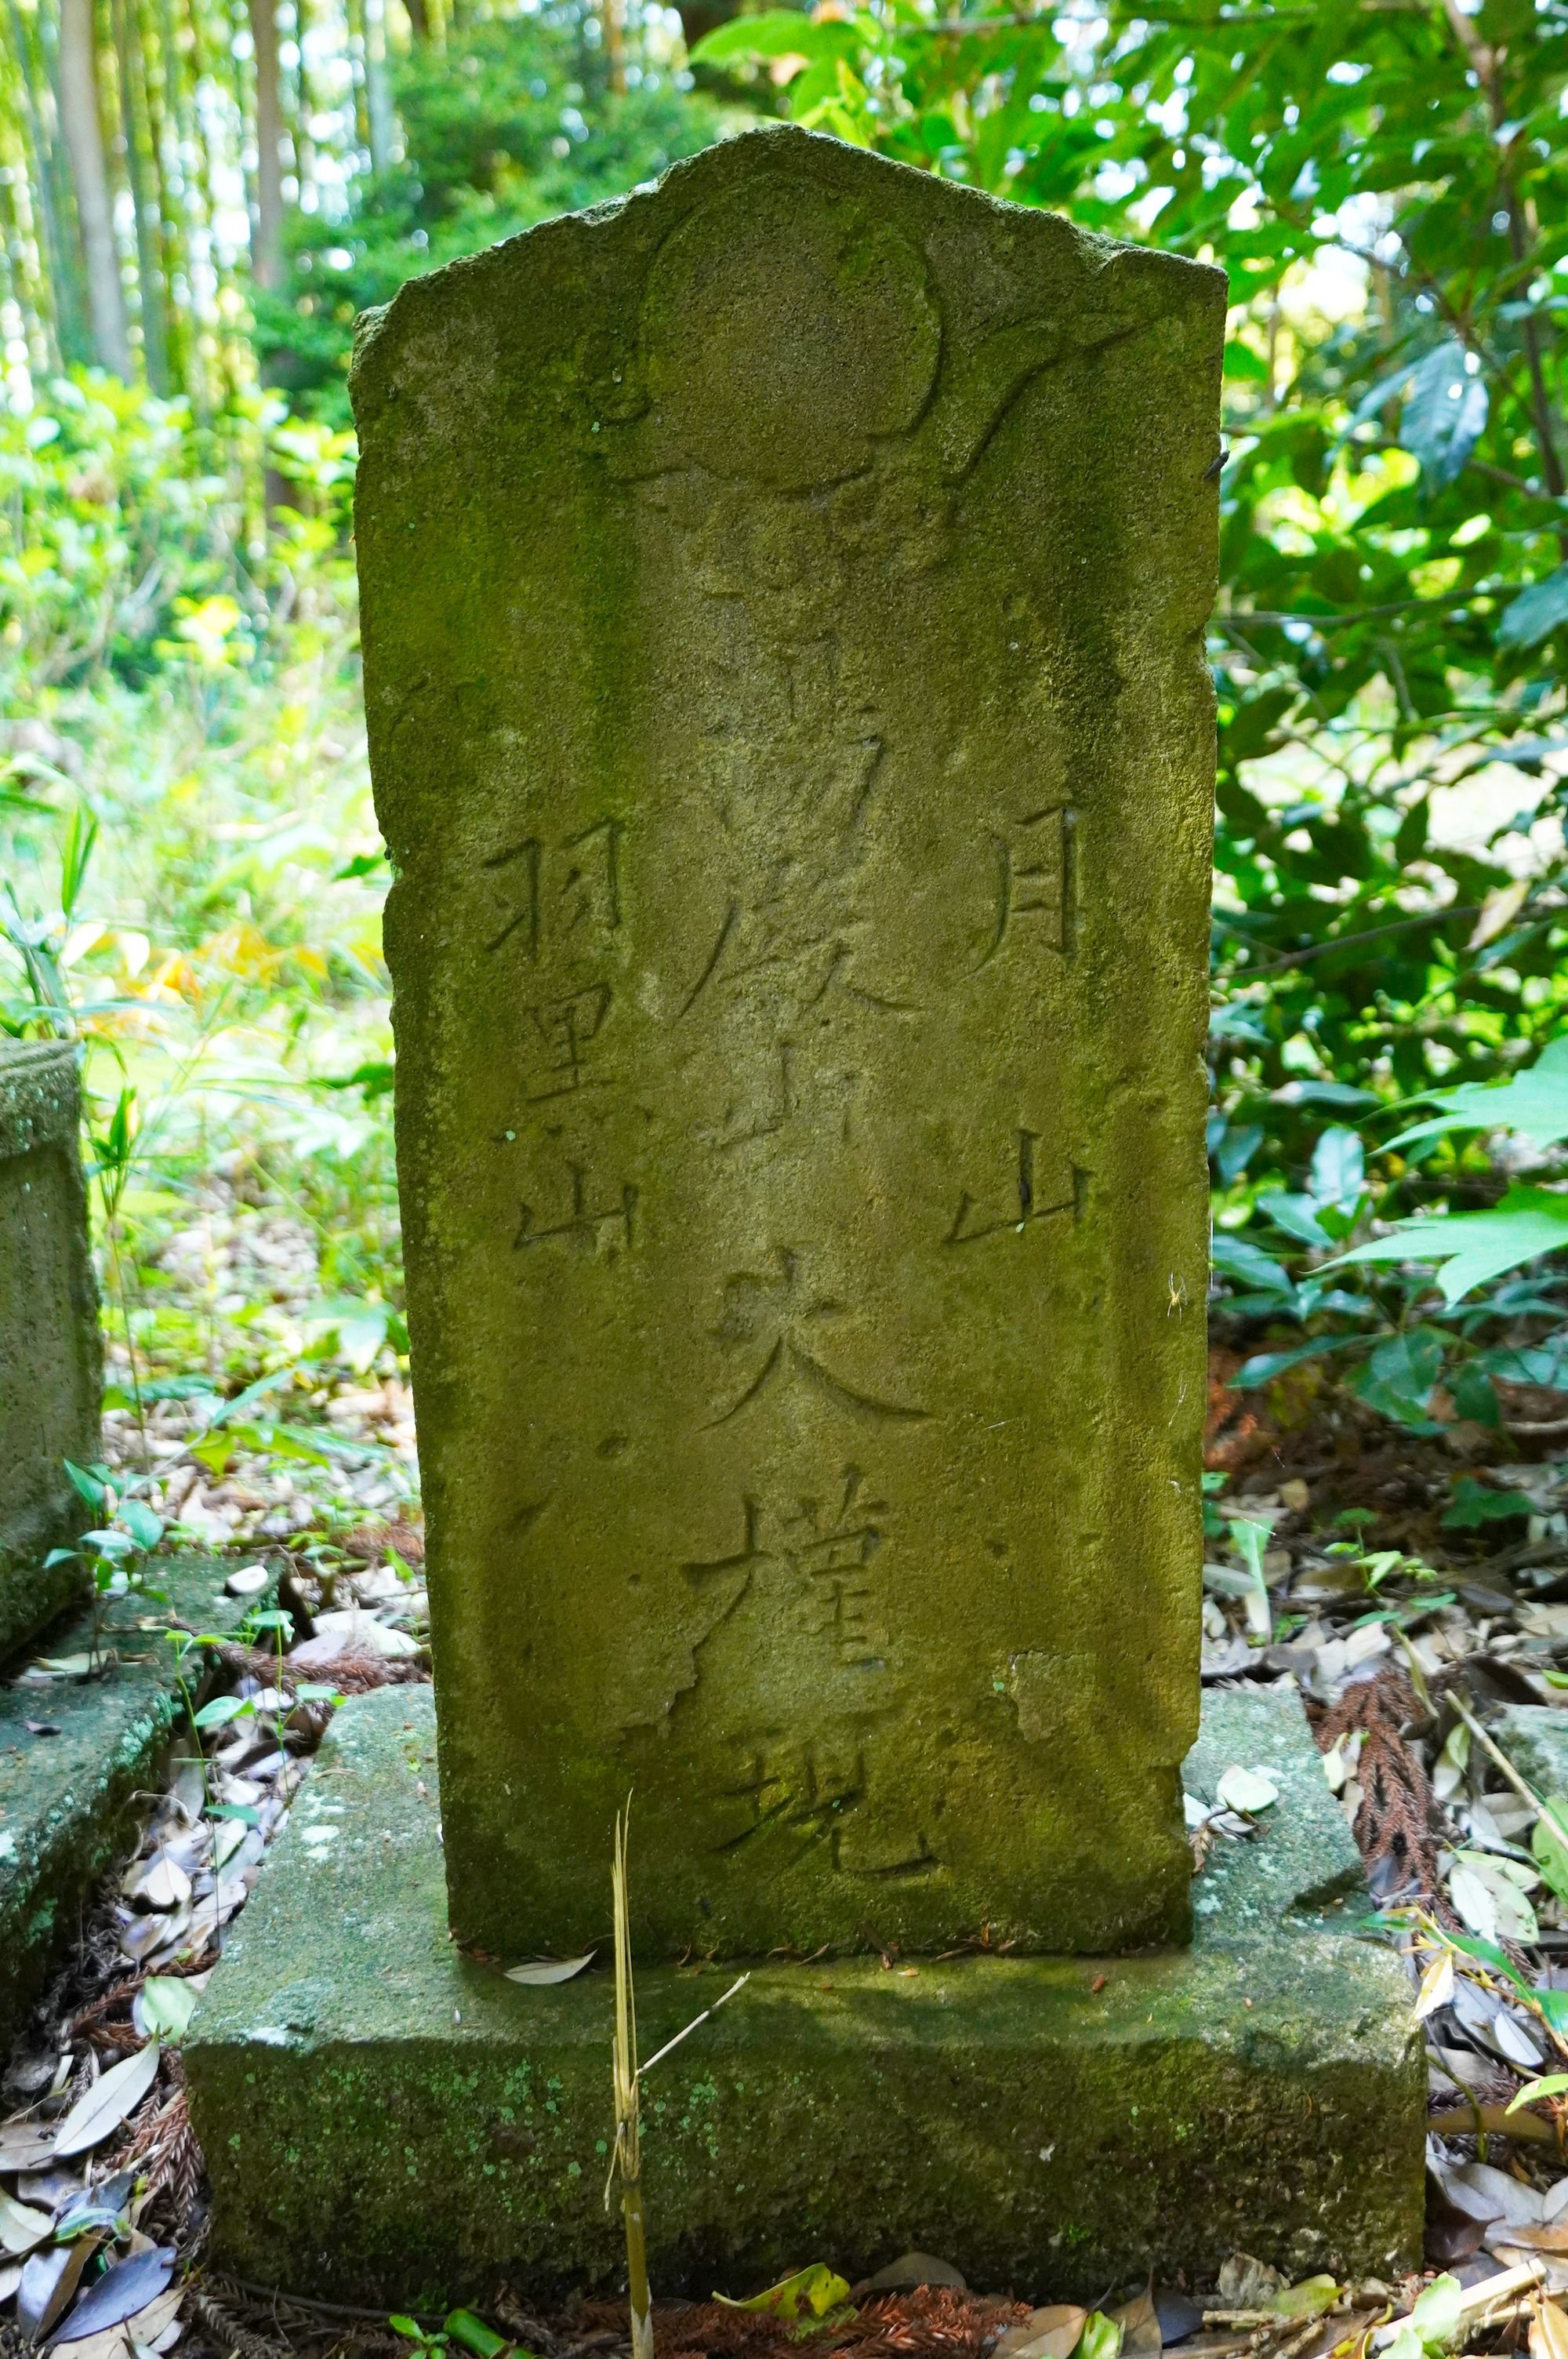 月山
湯殿山大権現
羽黒山